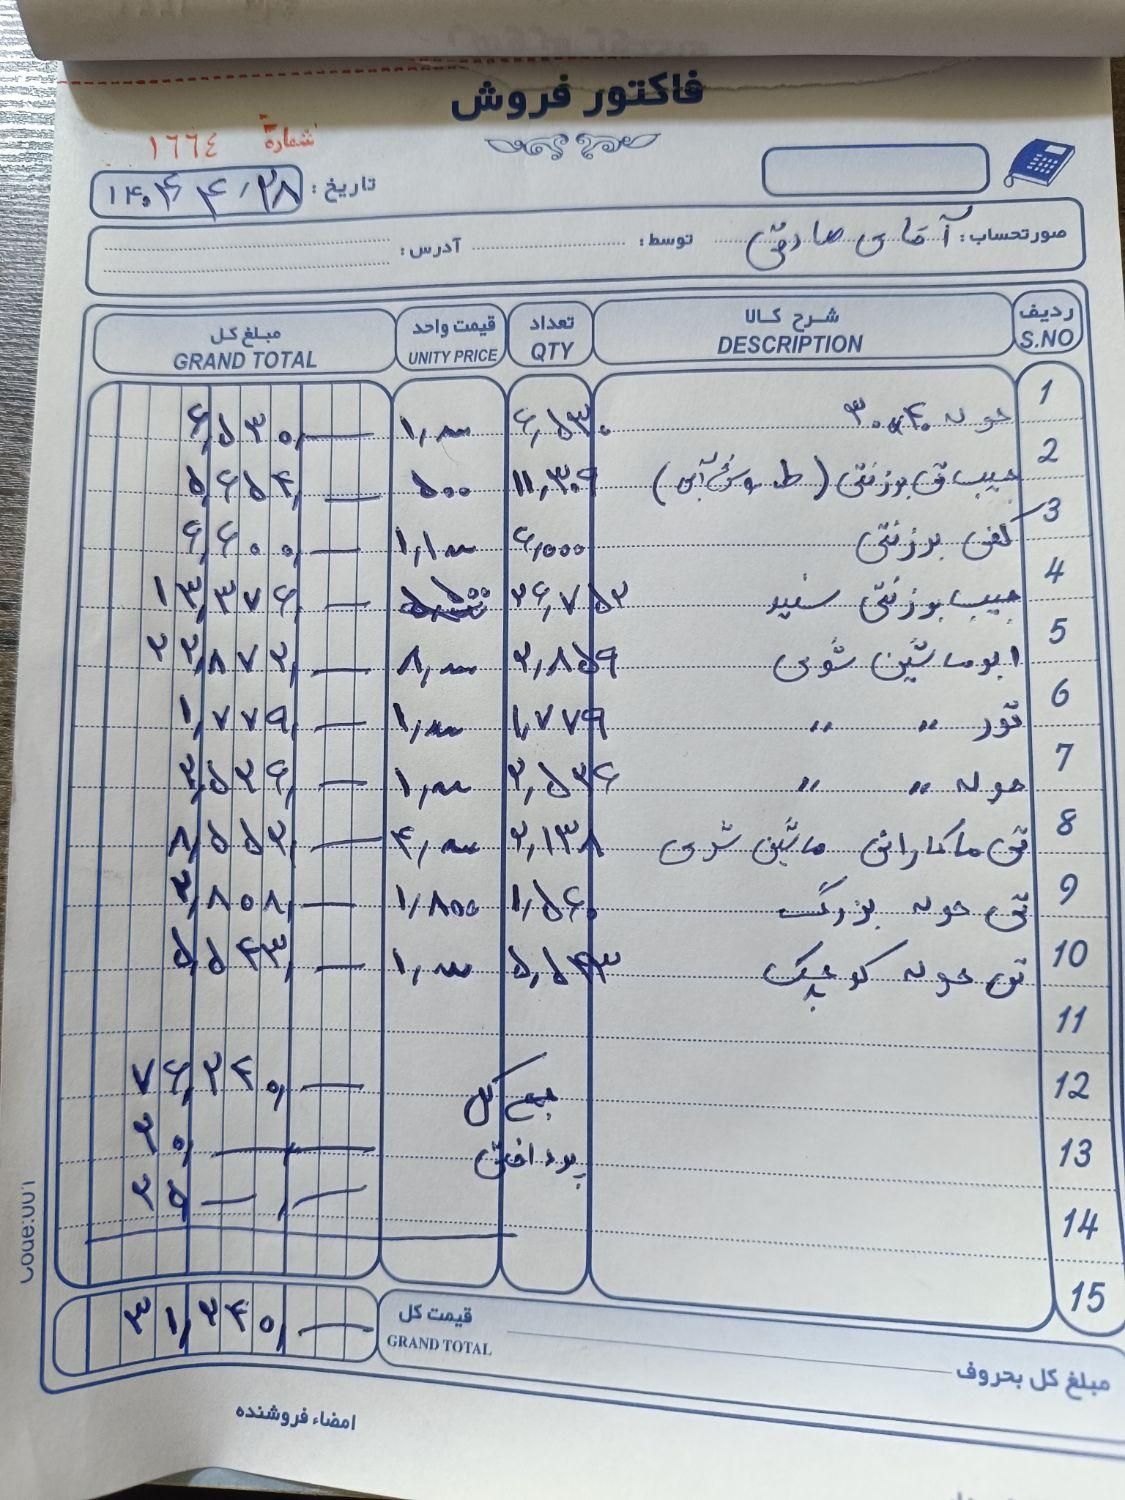 فاکتور فروش
شماره ١٦٦٤
تاریخ : ۱۴۰۴/۴/۲۸
صورتحساب : آقای صادقی توسط : آدرس :
ردیف S.NO شرح کالا DESCRIPTION تعداد QTY قیمت واحد UNITY PRICE مبلغ کل GRAND TOTAL
1 حوله ۳۰*۴۰ ۶,۵۳۰ ۱,۰۰۰ ۶,۵۳۰,—
2 جیب تی بوزنتی ( طوسی آبی ) ۱۱,۳۰۹ ۵۰۰ ۵,۶۵۴,—
3 کفی بوزنتی ۶,۰۰۰ ۱,۱۰۰ ۶,۶۰۰,—
4 جیب بوزنتی سفید ۲۶,۷۵۲ ۵۰۰ ۱۳,۳۷۶,—
5 ابر ماشین شوی ۲,۸۵۹ ۸,۰۰۰ ۲۲,۸۷۲,—
6 تور " " ۱,۷۷۹ ۱,۰۰۰ ۱,۷۷۹,—
7 حوله " " ۲,۵۲۶ ۱,۰۰۰ ۲,۵۲۶,—
8 تی ماکارانی ماشین شوی ۲,۱۳۸ ۴,۰۰۰ ۸,۵۵۲,—
9 تی حوله بزرگ ۱,۵۶۰ ۱,۸۰۰ ۲,۸۰۸,—
10 تی حوله کوچک ۵,۵۴۳ ۱,۰۰۰ ۵,۵۴۳,—
11
12 جمع کل ۷۶,۲۴۰,—
13 پرداختی ۲۰,—
14 ۲۵,—
15
قیمت کل GRAND TOTAL ۳۱,۲۴۰,—
مبلغ کل بحروف
امضاء فروشنده
Code:001